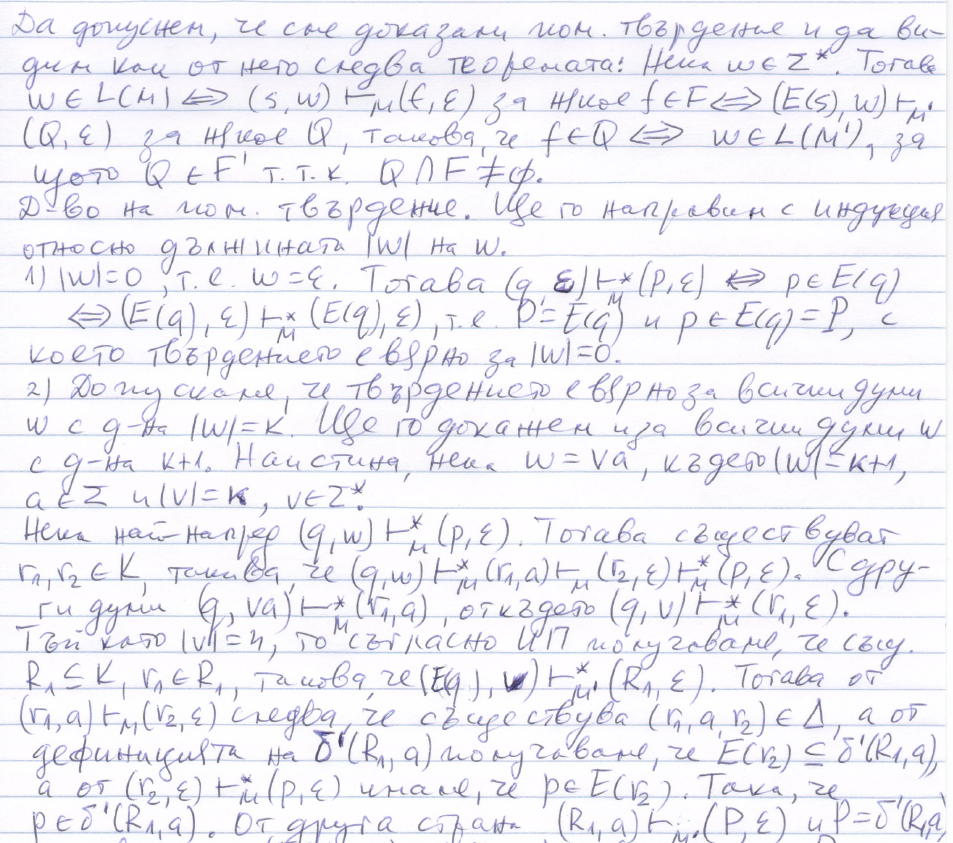 Да допуснем, че сме доказали пом. твърдение и да ви-
дим как от него следва теоремата: Нека w ∈ Σ*. Тогава
w ∈ L(M) ⟺ (s, w) ⊢_M (f, ε) за някое f ∈ F ⟺ (E(s), w) ⊢_M'
(Q, ε) за някое Q, такова, че f ∈ Q ⟺ w ∈ L(M'), за
щото Q ∈ F' т.т.к. Q ∩ F ≠ ф.
Д-во на пом. твърдение. Ще го направим с индукция
относно дължината |w| на w.
1) |w|=0, т.е. w=ε. Тогава (q, ε) ⊢*_M (p, ε) ⟺ p ∈ E(q)
⟺ (E(q), ε) ⊢*_M (E(q), ε), т.е. P = E(q) и p ∈ E(q) = P, с
което твърдението е вярно за |w|=0.
2) Допускаме, че твърдението е вярно за всички думи
w с д-на |w|=k. Ще го докажем и за всички думи w
с д-на k+1. Наистина, нека w = va, където |w|=k+1,
a ∈ Σ и |v|=k, v ∈ Σ*.
Нека най-напред (q, w) ⊢*_M (p, ε). Тогава съществуват
r1, r2 ∈ K, такива, че (q, w) ⊢*_M (r1, a) ⊢_M (r2, ε) ⊢*_M (p, ε). С дру-
ги думи (q, va) ⊢*_M (r1, a), откъдето (q, v) ⊢*_M (r1, ε).
Тъй като |v|=n, то съгласно ИП получаваме, че същ.
R1 ⊆ K, r1 ∈ R1, такова, че (E(q), v) ⊢*_M' (R1, ε). Тогава от
(r1, a) ⊢_M (r2, ε) следва, че съществува (r1, a, r2) ∈ Δ, а от
дефиницията на δ'(R1, a) получаваме, че E(r2) ⊆ δ'(R1, a),
а от (r2, ε) ⊢*_M (p, ε) имаме, че p ∈ E(r2). Така, че
p ∈ δ'(R1, a). От друга страна (R1, a) ⊢_M' (P, ε) и P = δ'(R1, a,